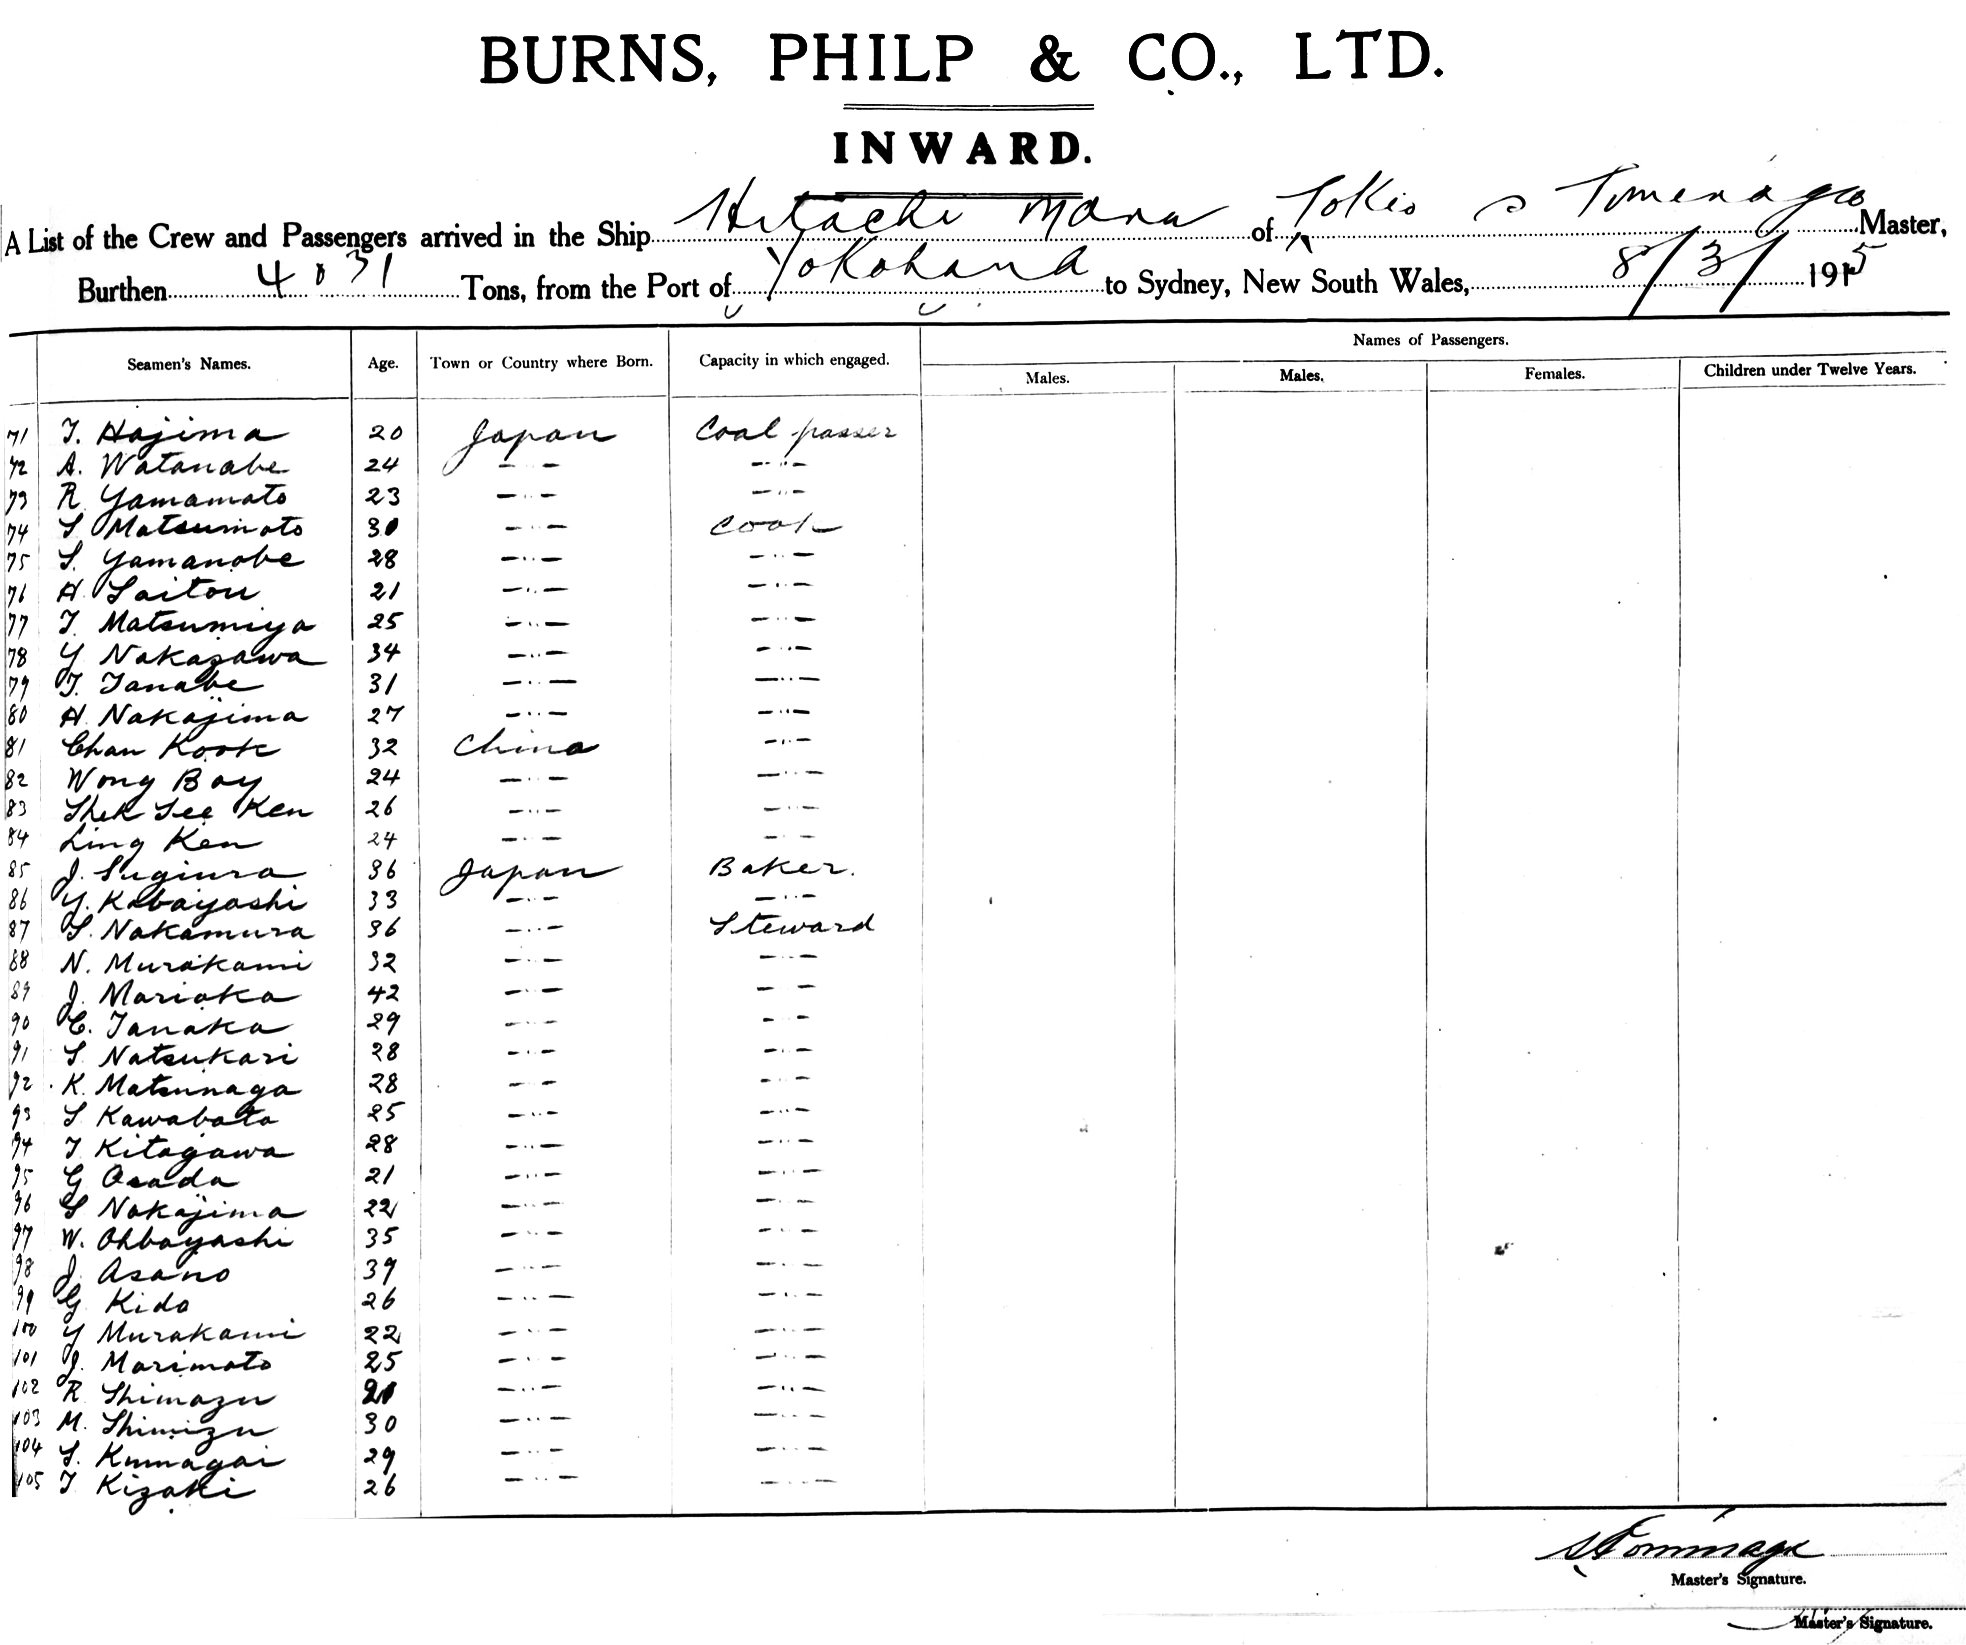 BURNS, PHILP & CO., LTD.
INWARD.
A List of the Crew and Passengers arrived in the Ship Hitachi Maru of Tokio S Tomenaga Master,
Burthen 4031 Tons, from the Port of Yokohama to Sydney, New South Wales, 8/3/1915
Names of Passengers.
Seamen's Names. Age. Town or Country where Born. Capacity in which engaged. Males. Males. Females. Children under Twelve Years.
71 T. Hajima 20 Japan Coal passer
72 A. Watanabe 24 -..- -..-
73 R Yamamato 23 -..- -..-
74 S Matsumoto 30 -..- Cook
75 S. Yamanobe 28 -..- -..-
76 H Saitou 21 -..- -..-
77 T. Matsumiya 25 -..- -..-
78 Y Nakazawa 34 -..- -..-
79 T. Tanabe 31 -..- -..-
80 H. Nakajima 27 -..- -..-
81 Chan Kook 32 China -..-
82 Wong Boy 24 -..- -..-
83 Shek See Ken 26 -..- -..-
84 Ling Ken 24 -..- -..-
85 J. Sugiura 36 Japan Baker.
86 Y. Kobayashi 33 -..- -..-
87 S. Nakamura 36 -..- Steward
88 N. Murakami 32 -..- -..-
89 J. Marioka 42 -..- -..-
90 C. Tanaka 29 -..- -..-
91 S. Natsukari 28 -..- -..-
92 K. Matsunaga 28 -..- -..-
93 S Kawabata 25 -..- -..-
94 T Kitagawa 28 -..- -..-
95 G Osada 21 -..- -..-
96 S Nakajima 22 -..- -..-
97 W. Ohbayashi 35 -..- -..-
98 J. Asano 39 -..- -..-
99 G Kido 26 -..- -..-
100 Y Murakami 22 -..- -..-
101 J. Marimoto 25 -..- -..-
102 R Shimazu 21 -..- -..-
103 M. Shimizu 30 -..- -..-
104 S. Kumagai 29 -..- -..-
105 T Kizaki 26 -..- -..-
S Tominaga
Master's Signature.
Master's Signature.